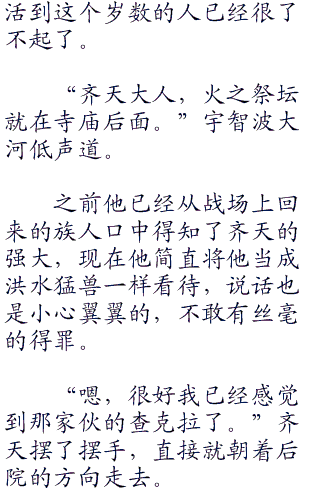 活到这个岁数的人已经很了
不起了。
“齐天大人，火之祭坛
就在寺庙后面。”宇智波大
河低声道。
之前他已经从战场上回
来的族人口中得知了齐天的
强大，现在他简直将他当成
洪水猛兽一样看待，说话也
是小心翼翼的，不敢有丝毫
的得罪。
“嗯，很好我已经感觉
到那家伙的查克拉了。”齐
天摆了摆手，直接就朝着后
院的方向走去。